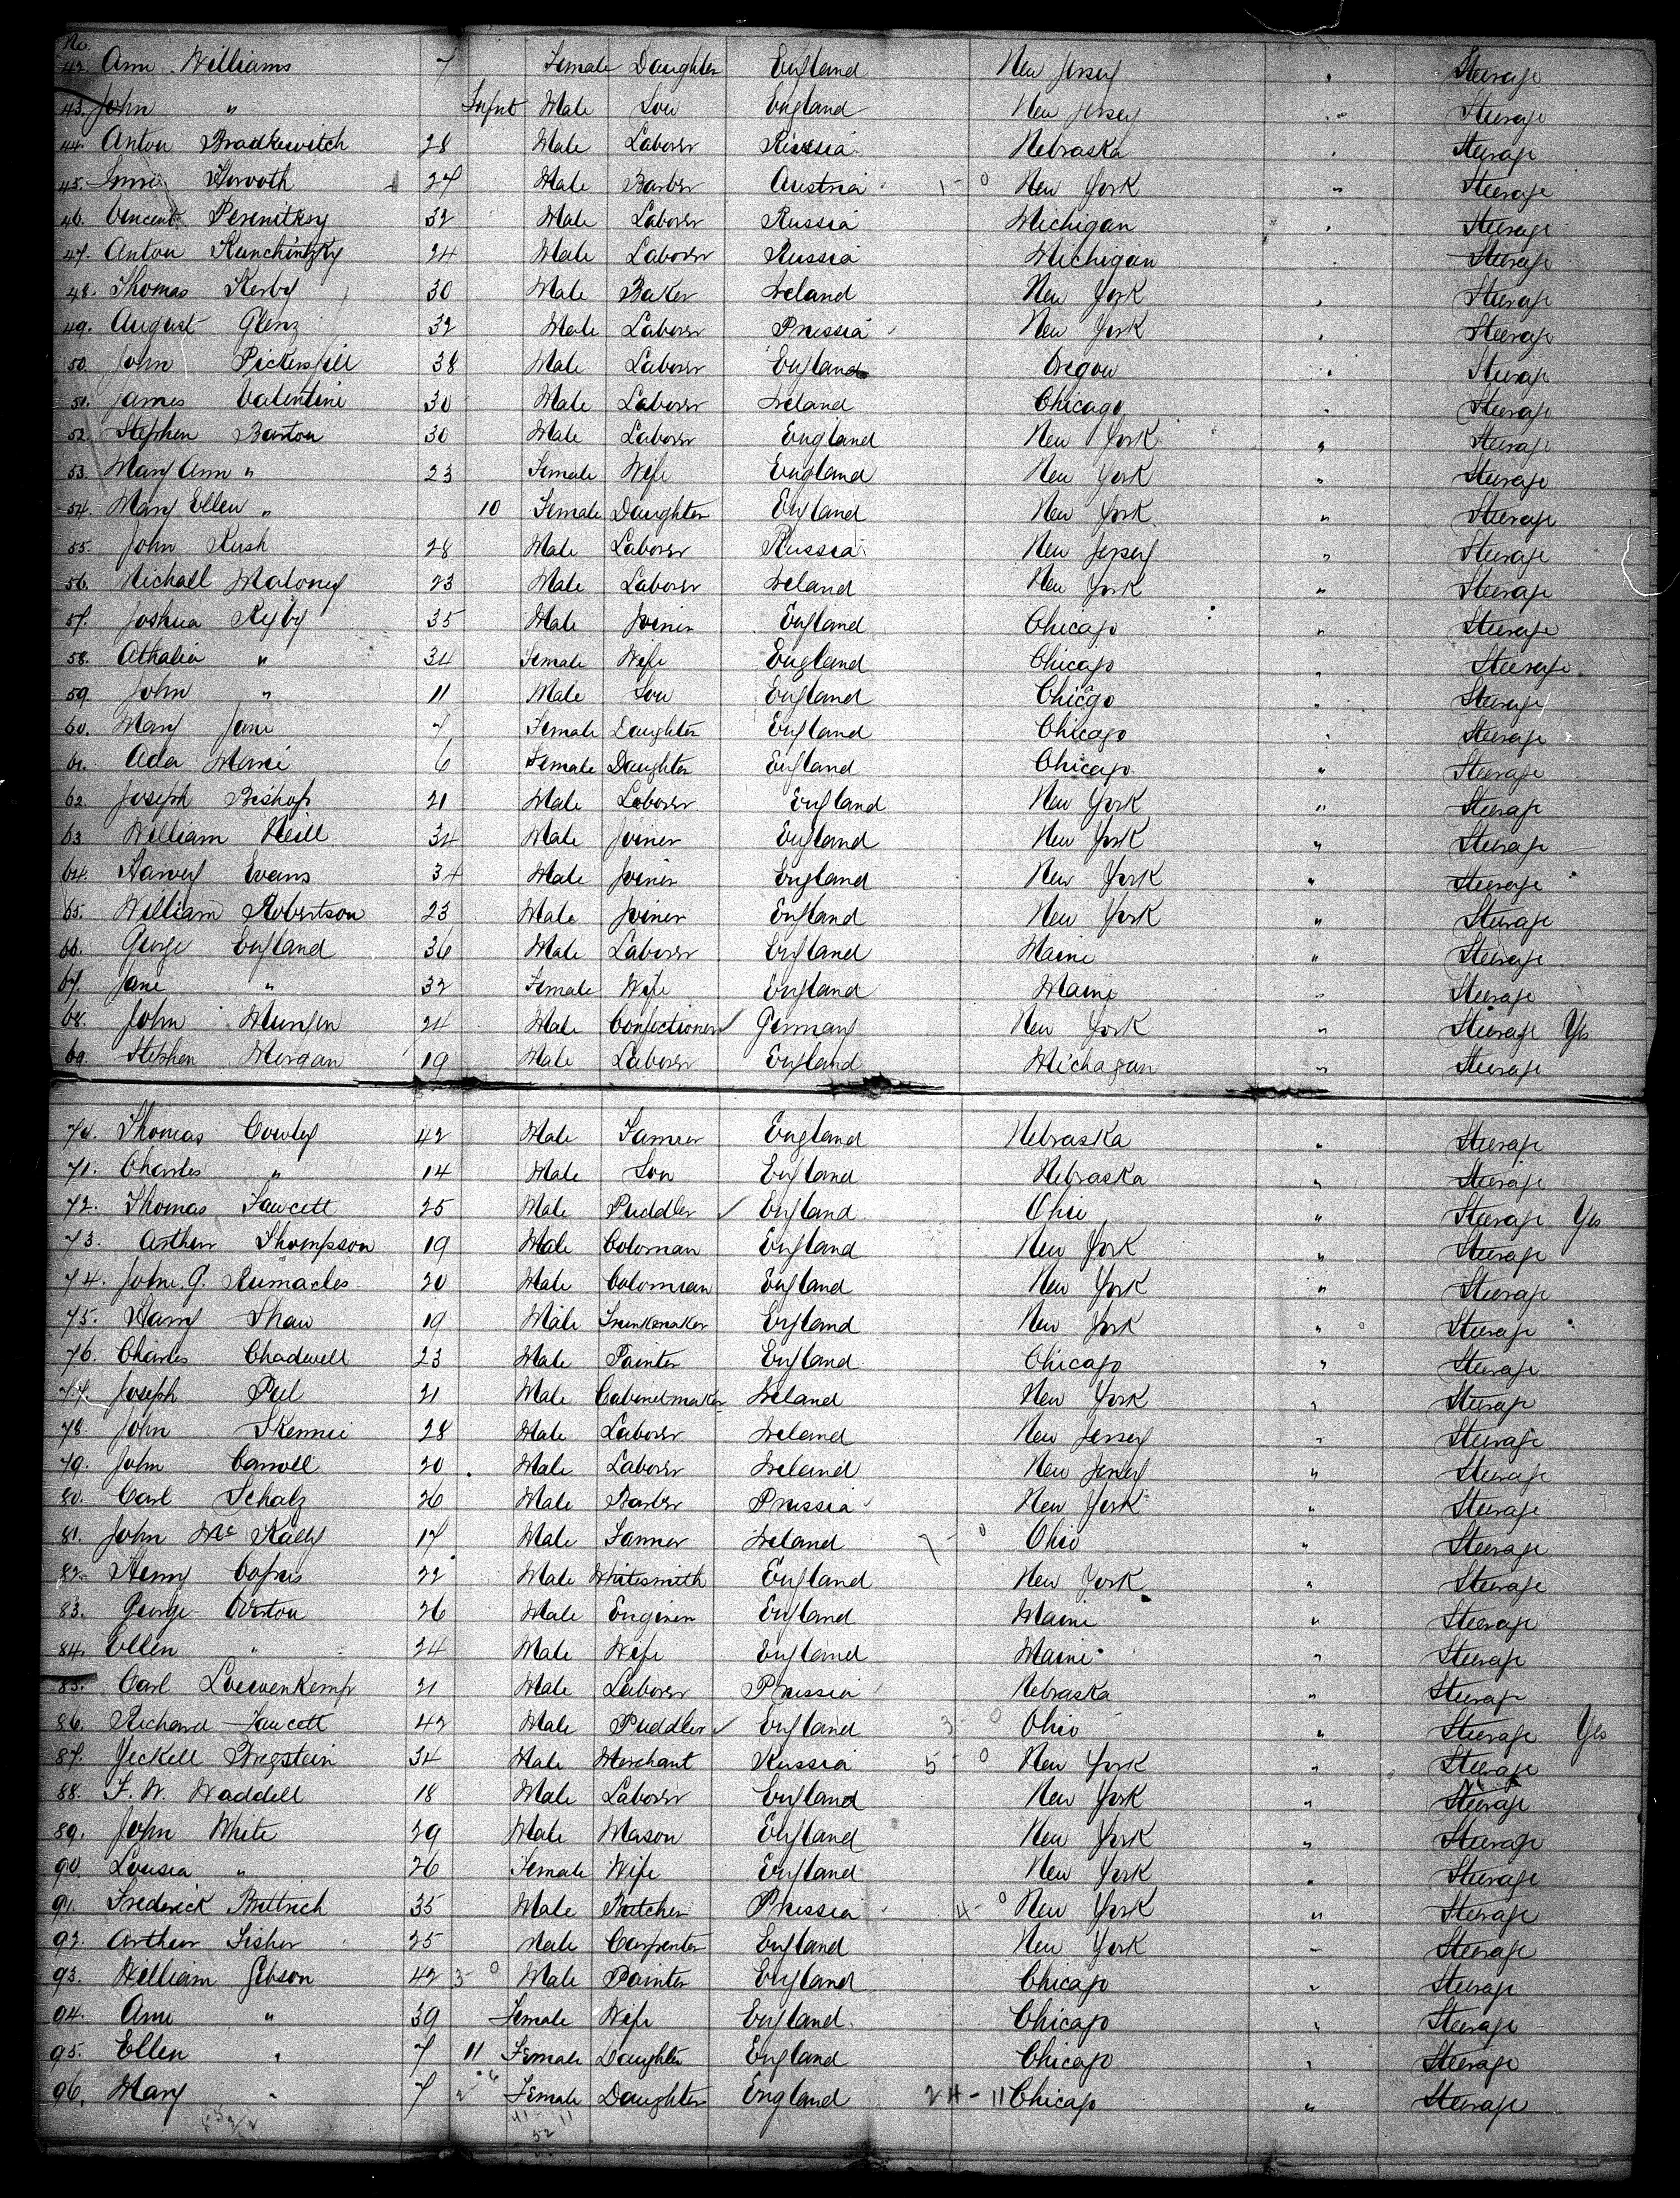 No.
42. Ann Williams 7 Female Daughter England New Jersey " Steerage
43. John " Infnt Male Son England New Jersey " Steerage
44. Anton Bradkewitch 28 Male Laborer Russia Nebraska " Steerage
45. Horvoth 27 Male Barber Austria 1-0 New York " Steerage
46. Vincent 32 Male Laborer Russia Michigan " Steerage
47. Anton Kunchintzky 24 Male Laborer Russia Michigan " Steerage
48. Thomas Kerby 30 Male Baker Ireland New York " Steerage
49. August Glenz 32 Male Laborer Prussia New York " Steerage
50. John Pickersgill 38 Male Laborer England Oregon " Steerage
51. James Valentine 30 Male Laborer Ireland Chicago " Steerage
52. Stephen Barton 30 Male Laborer England New York " Steerage
53. Mary Ann " 23 Female Wife England New York " Steerage
54. Mary Ellen " 10 Female Daughter England New York " Steerage
55. John Rush 28 Male Laborer Russia New Jersey " Steerage
56. Michall Maloney 23 Male Laborer Ireland New York " Steerage
57. Joshua Rigby 35 Male Joiner England Chicago " Steerage
58. Athalia " 34 Female Wife England Chicago " Steerage
59. John " 11 Male Son England Chicago " Steerage
60. Mary Jane 7 Female Daughter England Chicago " Steerage
61. Ada 6 Female Daughter England Chicago " Steerage
62. Joseph Bishop 21 Male Laborer England New York " Steerage
63. William Neill 34 Male Joiner England New York " Steerage
64. Harvey Evans 34 Male Joiner England New York " Steerage
65. William Robertson 23 Male Joiner England New York " Steerage
66. George England 36 Male Laborer England Maine " Steerage
67. Jane " 32 Female Wife England Maine " Steerage
68. John 24 Male Confectioner ✓ Germany New York " Steerage Yes
69. Stephen Morgan 19 Male Laborer England Michagan " Steerage
70. Thomas Cowley 42 Male Farmer England Nebraska " Steerage
71. Charles " 14 Male Son England Nebraska " Steerage
72. Thomas Fawcett 25 Male Puddler ✓ England Ohio " Steerage Yes
73. Arthur Thompson 19 Male Coloman England New York " Steerage
74. John G. Rumacles 20 Male Coloman England New York " Steerage
75. Harry Shaw 19 Male Trunkmaker England New York " Steerage
76. Charles Chadwell 23 Male Painter England Chicago " Steerage
77. Joseph Peel 21 Male Cabinetmaker Ireland New York " Steerage
78. John Skennie 28 Male Laborer Ireland New Jersey " Steerage
79. John Carroll 20 Male Laborer Ireland New Jersey " Steerage
80. Carl Schalz 26 Male Barber Prussia New York " Steerage
81. John Mc Kally 17 Male Farmer Ireland 7-0 Ohio " Steerage
82. Henry 22 Male Whitesmith England New York " Steerage
83. George Overton 26 Male Enginer England Maine " Steerage
84. Ellen " 24 Male Wife England Maine " Steerage
85. Carl Loewenkemp 21 Male Laborer Prussia Nebraska " Steerage
86. Richard Fawcett 42 Male Puddler ✓ England 3-0 Ohio " Steerage Yes
87. Jeckell Bregstein 34 Male Merchant Russia 5-0 New York " Steerage
88. F. W. Waddell 18 Male Laborer England New York " Steerage
89. John White 29 Male Mason England New York " Steerage
90. Lousia " 26 Female Wife England New York " Steerage
91. Frederick Bittrich 35 Male Butcher Prussia 4-0 New York " Steerage
92. Arthur Fisher 25 Male Carpenter England New York " Steerage
93. William Gibson 42 3-0 Male Painter England Chicago " Steerage
94. Ann " 39 Female Wife England Chicago " Steerage
95. Ellen " 7 11 Female Daughter England Chicago " Steerage
96. Mary " 7 Female Daughter England 24-11 Chicago " Steerage
41-11
52